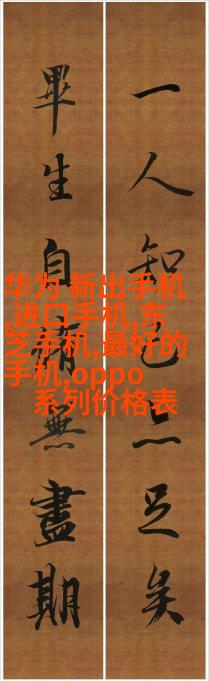 一人知己亦足矣
畢生自脩無盡期
华为 新出手机
,进口手机,东
芝手机,最好的
手机,oppo
系列价格表